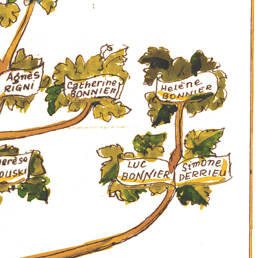 Agnès
RIGNI
Catherine
BONNIER
Hélène
BONNIER
LUC
BONNIER
Simone
DERRIEU